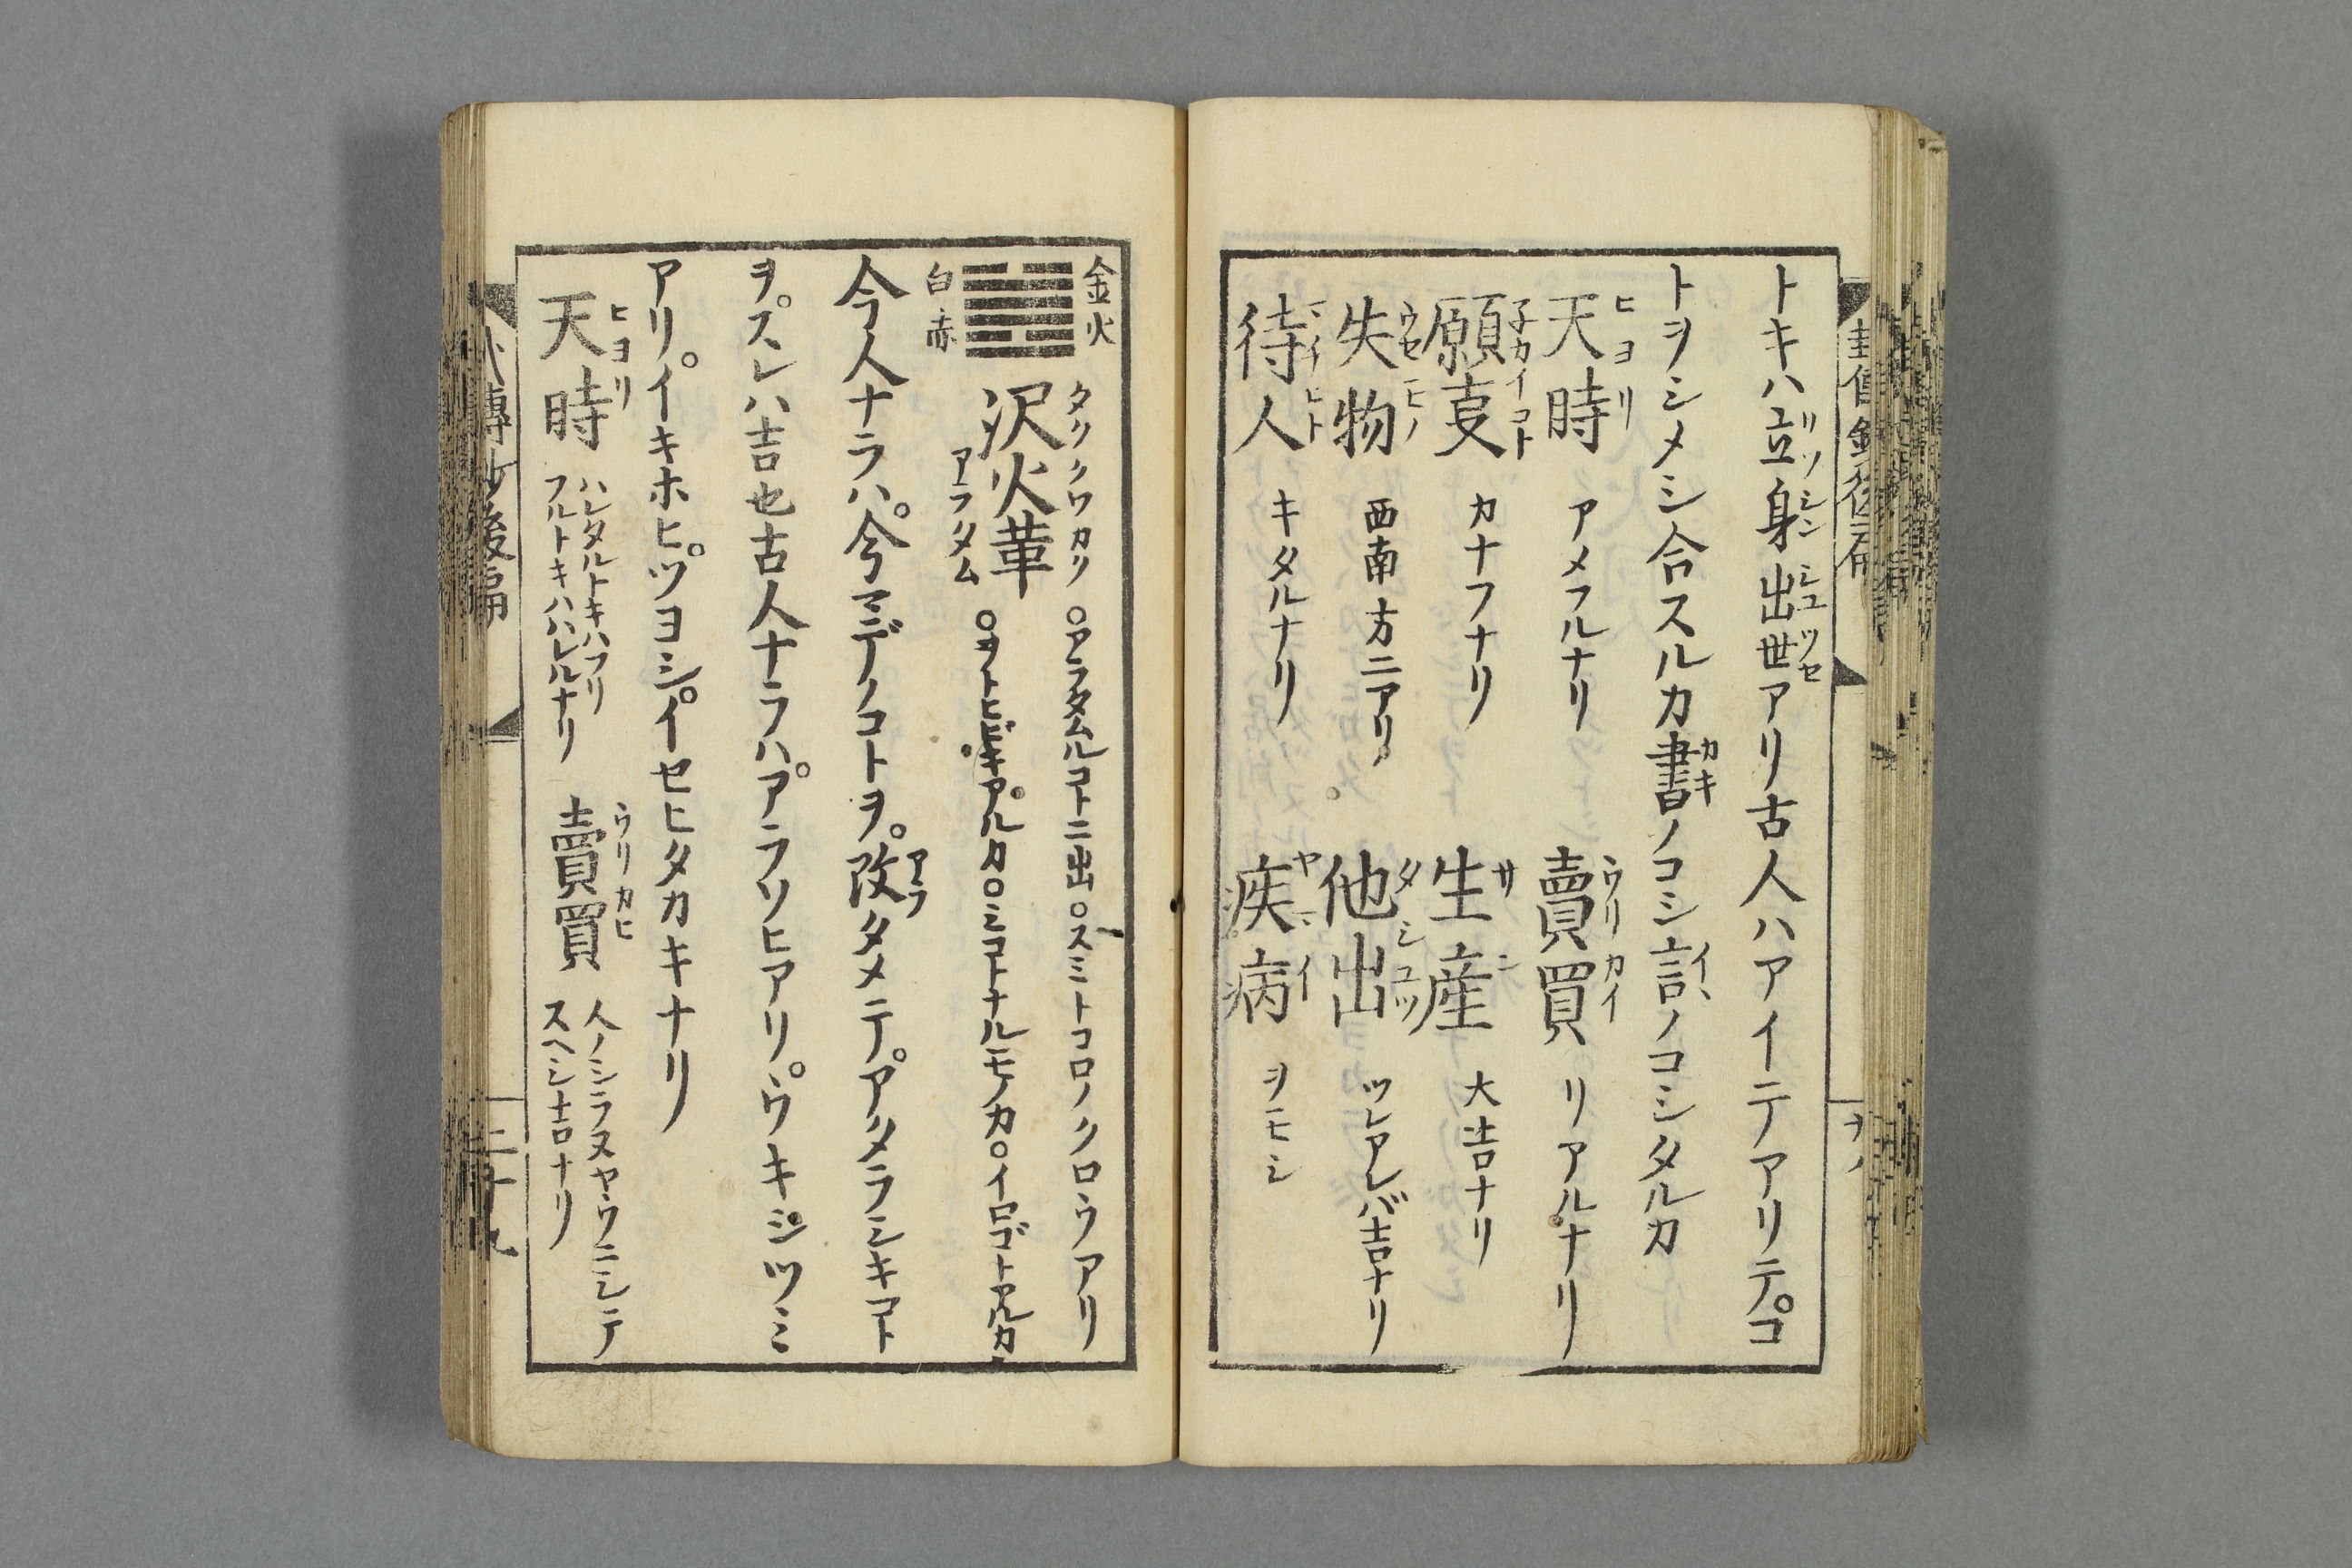 トキハ立身出世アリ古人ハアイテアリテ。コ
リツシンシユツセ
トヲシメシ合スルカ書ノコシ言ノコシタルカ
カキ
イヽ
天時 アメフルナリ 賣買 リアルナリ
ヒヨリ ウリカイ
願叓 カナフナリ 生産 大吉ナリ
子カイコト サン
失物 西南方ニアリ 他出 ツレアレバ吉ナリ
ウセモノ タシユツ
待人 キタルナリ 疾病 ヲモシ
マイ
金火
白赤
沢火革
タククワカク
アラタム
○アラタムルコトニ出○スミトコロノクロウアリ
○ヲトヒビキアルカ○ミコトナルモノカ○イロゴトアルカ
今人ナラハ。今マデノコトヲ。改タメテ。アタラシキコト
アラ
ヲ。スレハ吉也古人ナラハ。アラソヒアリ。ウキシツミ
アリ。イキホヒ。ツヨシ。イセヒタカキナリ
天時 ハレタルトキハフリ
フルトキハハレルナリ
ヒヨリ
賣買 人ノシラヌヤウニシテ
スヘシ吉ナリ
ウリカヒ
後編